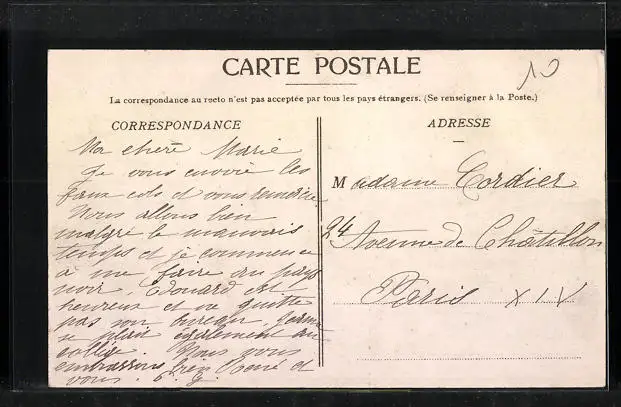 10
CARTE POSTALE
La correspondance au recto n'est pas acceptée par tous les pays étrangers. (Se renseigner à la Poste.)
CORRESPONDANCE
Ma chère Marie
Je vous envoie les
faux cols et vous remercie
Nous allons bien
malgré le mauvais
temps et je commence
à me faire au pays
noir. Edouard est
heureux et ne quitte
pas son bureau.
se plait également au
collège. Nous vous
embrassons bien René et
vous.
ADRESSE
Madame Cordier
24 Avenue de Châtillon
Paris XIV